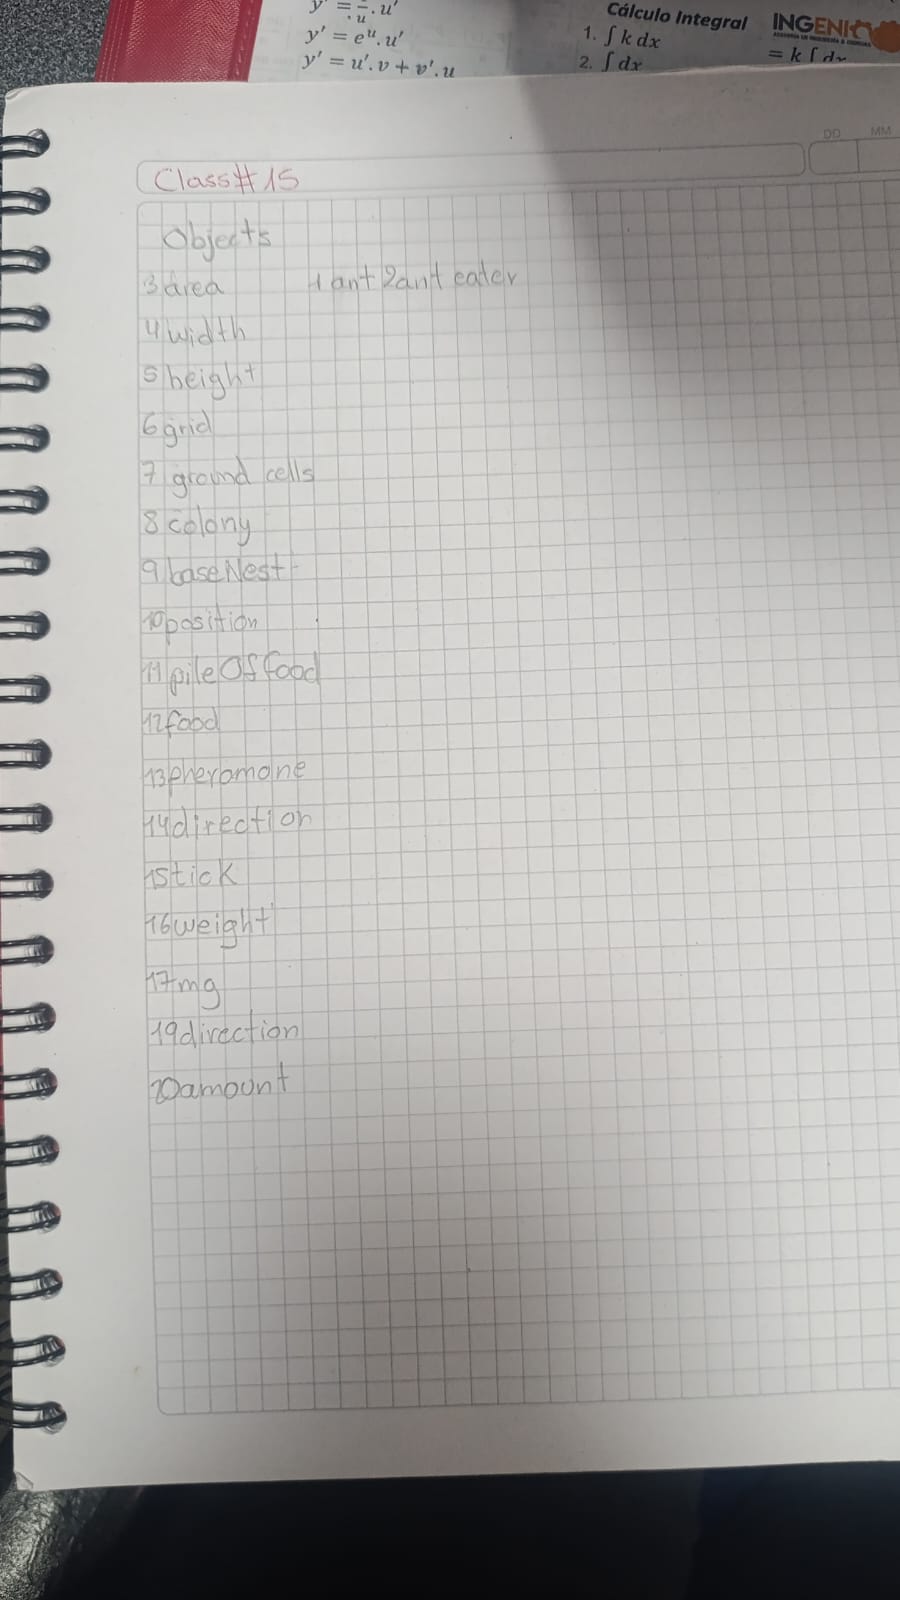 y' = u . u'
y' = eᵘ. u'
y' = u'. v + v'. u
Cálculo Integral
1. ∫ k dx
2. ∫ dx
INGENIO
= k ∫ dx
DD MM
Class#15
Objects
3 área 1 ant 2 ant eater
4 width
5 height
6 grid
7 ground cells
8 colony
9 baseNest
10 position
11 pileOf food
12 food
13 pheromone
14 direction
15 tick
16 weight
17 mg
19 direction
20 amount